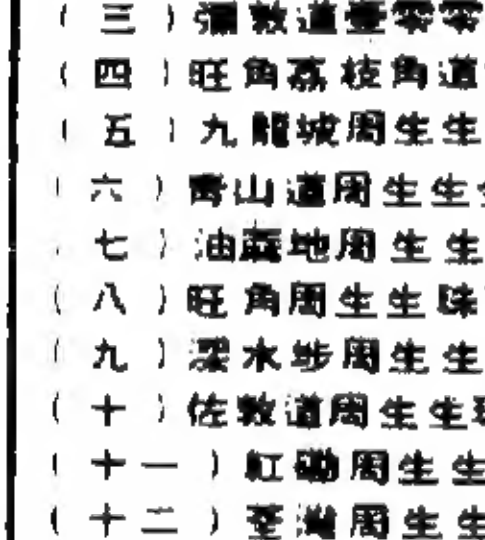 （三）彌敦道壹零零
（四）旺角荔枝角道
（五）九龍城周生生
（六）青山道周生生
（七）油蔴地周生生
（八）旺角周生生珠
（九）深水埗周生生
（十）佐敦道周生生
（十一）紅磡周生生
（十二）荃灣周生生